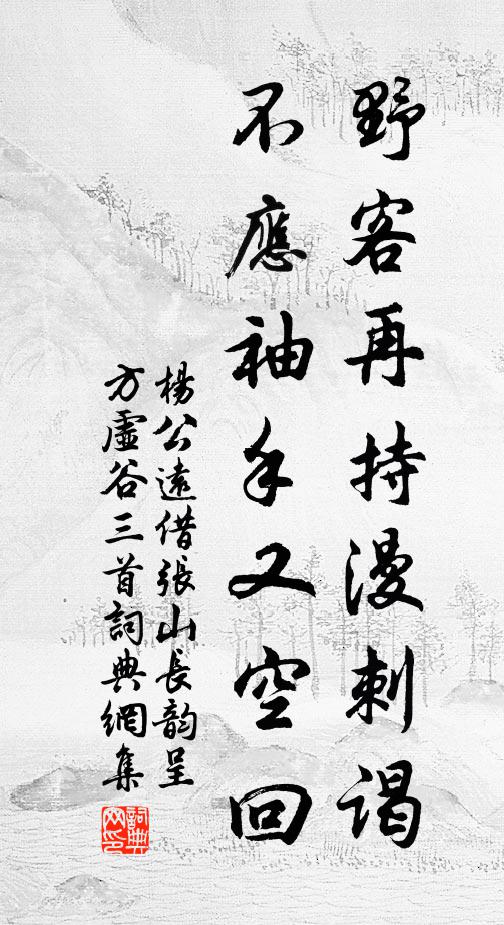 野客再持漫刺謁
不應袖手又空回
楊公遠借張山長韵呈
方虛谷三首詞典網集
詞典网印